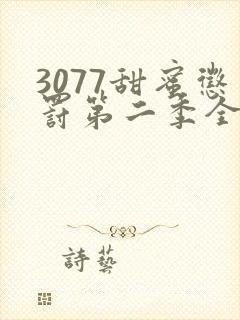 3077甜蜜懲
罰第二季全
詩藝